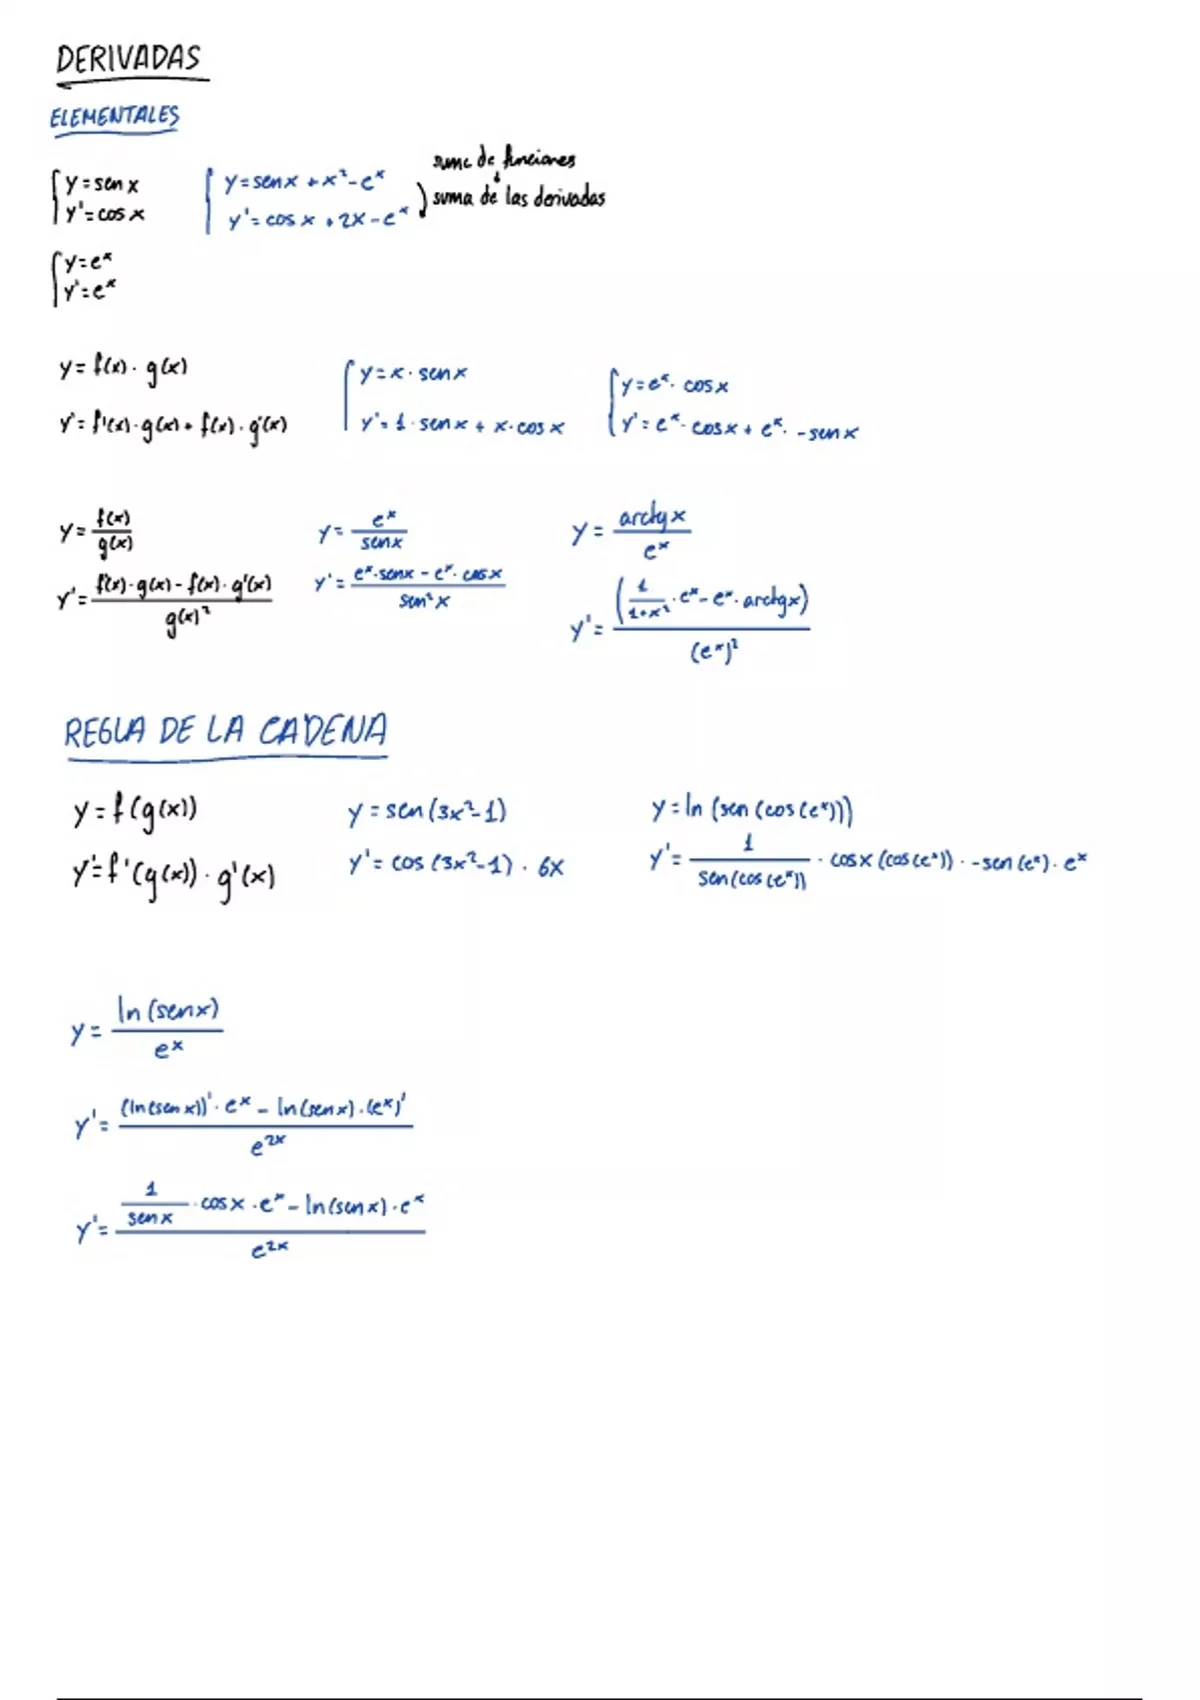 DERIVADAS
ELEMENTALES
y = sen x
y' = cos x
y = sen x + x² - eˣ
y' = cos x + 2x - eˣ
suma de funciones
↓
suma de las derivadas
y = eˣ
y' = eˣ
y = f(x) · g(x)
y' = f'(x) · g(x) + f(x) · g'(x)
y = x · sen x
y' = 1 · sen x + x · cos x
y = eˣ · cos x
y' = eˣ · cos x + eˣ · - sen x
y = f(x) / g(x)
y' = f'(x) · g(x) - f(x) · g'(x) / g(x)²
y = eˣ / sen x
y' = eˣ · sen x - eˣ · cos x / sen² x
y = arctg x / eˣ
y' = (1 / 1+x² · eˣ - eˣ · arctg x) / (eˣ)²
REGLA DE LA CADENA
y = f(g(x))
y' = f'(g(x)) · g'(x)
y = sen (3x² - 1)
y' = cos (3x² - 1) · 6x
y = ln (sen (cos (eˣ)))
y' = 1 / sen (cos (eˣ)) · cos x (cos (eˣ)) · - sen (eˣ) · eˣ
y = ln (sen x) / eˣ
y' = (ln (sen x))' · eˣ - ln (sen x) · (eˣ)' / e²ˣ
y' = 1 / sen x · cos x · eˣ - ln (sen x) · eˣ / e²ˣ